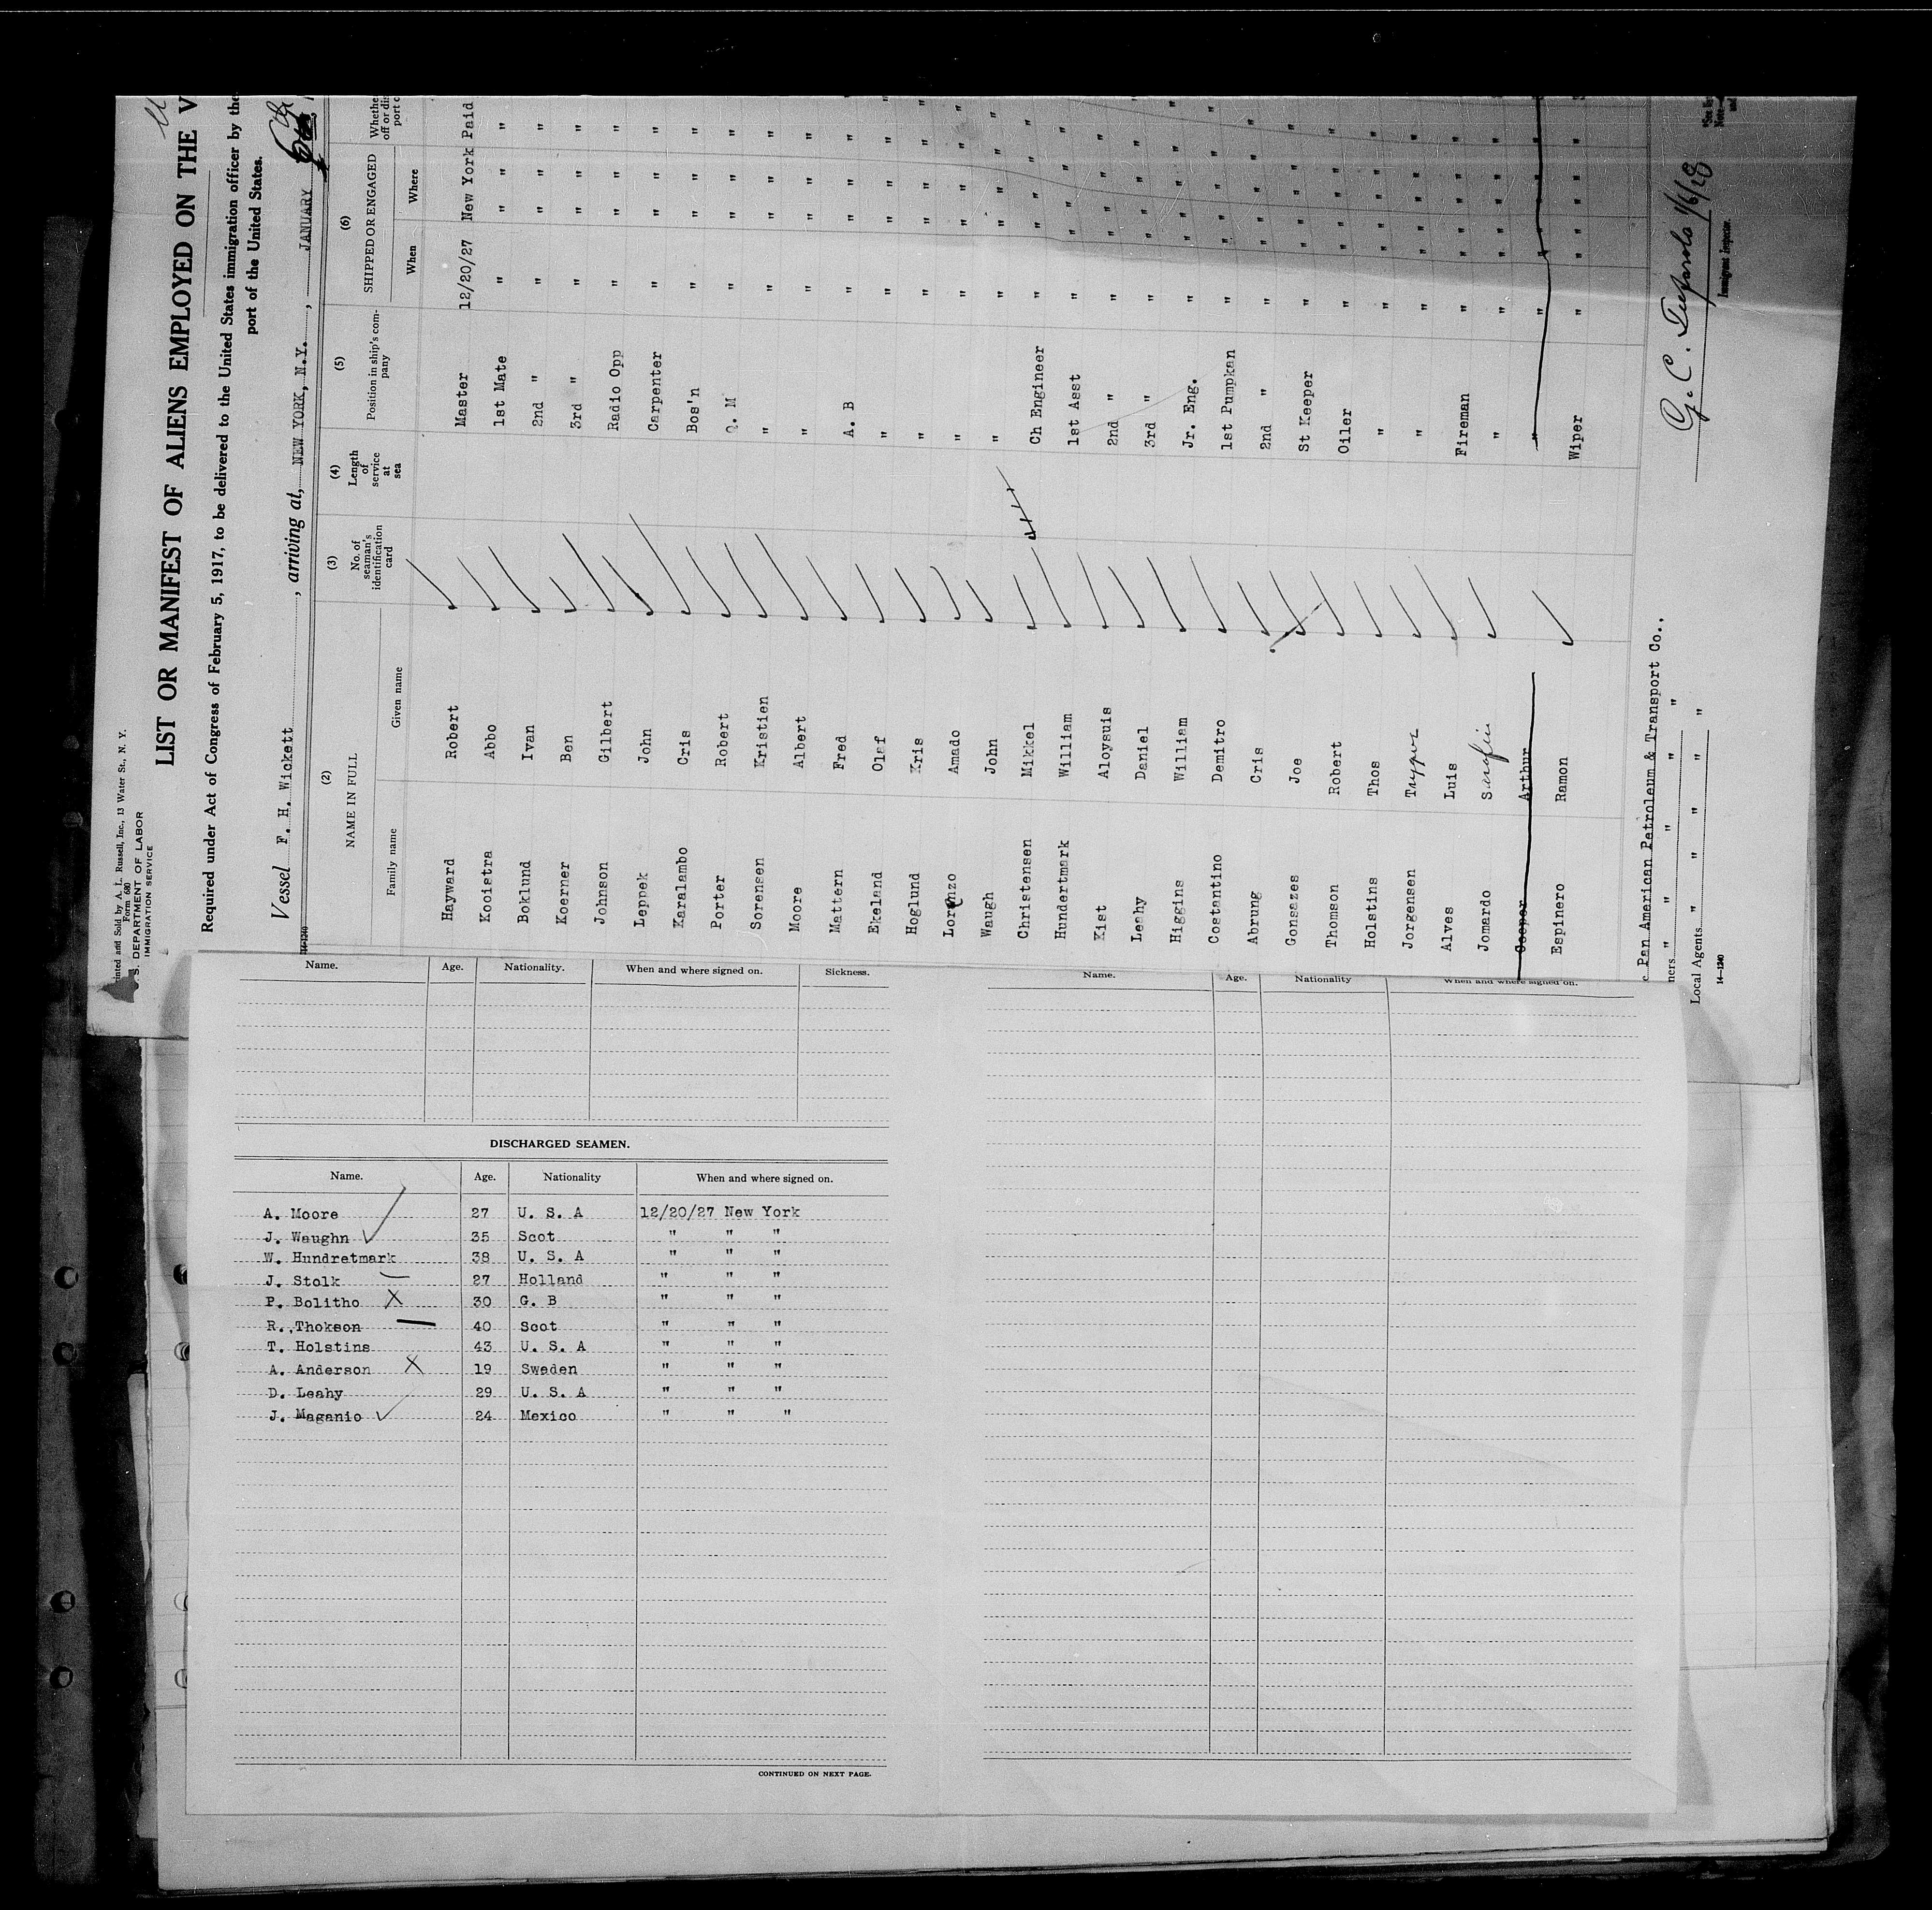 Printed and Sold by A. L. Russell, Inc., 13 Water St., N. Y.
Form 680
U. S. DEPARTMENT OF LABOR
IMMIGRATION SERVICE
LIST OR MANIFEST OF ALIENS EMPLOYED ON THE V
Required under Act of Congress of February 5, 1917, to be delivered to the United States immigration officer by the
port of the United States.
Vessel F. H. Wickett, arriving at, NEW YORK, N.Y., JANUARY 6th
14-1240
(2) (3) (4) (5) (6)
NAME IN FULL No. of seaman's identification card Length of service at sea Position in ship's company SHIPPED OR ENGAGED Whethe off or dis port o
Family name Given name When Where
Hayward Robert Master 12/20/27 New York Paid
Kooistra Abbo 1st Mate " " " "
Boklund Ivan 2nd " " " " "
Koerner Ben 3rd " " " " "
Johnson Gilbert Radio Opp " " " "
Leppek John Carpenter " " " "
Karalambo Cris Bos'n " " " "
Porter Robert Q. M " " " "
Sorensen Kristien " " " " "
Moore Albert " " " " "
Mattern Fred A. B " " " "
Ekeland Olaf " " " " "
Hoglund Kris " " " " "
Lorenzo Amado " " " " "
Waugh John " " " " "
Christensen Mikkel Ch Engineer " " " "
Hundertmark William 1st Asst " " " "
Kist Aloysuis 2nd " " " " "
Leahy Daniel 3rd " " " " "
Higgins William Jr. Eng. " " " "
Costantino Demitro 1st Pumpkan " " " "
Abrung Cris 2nd " " " " "
Gonsazes Joe St Keeper " " " "
Thomson Robert Oiler " " " "
Holstins Thos " " " " "
Jorgensen Trygve " " " " "
Alves Luis Fireman " " " "
Jomardo Serafin " " " " "
Cooper Arthur " " " " "
Espinero Ramon Wiper " " " "
Pan American Petroleum & Transport Co.,
ners " " " " "
Local Agents " " " " "
14-1240
G. C. 1/6/28
Immigrant Inspector.
Name. Age. Nationality. When and where signed on. Sickness.
Name. Age. Nationality When and where signed on.
DISCHARGED SEAMEN.
Name. Age. Nationality When and where signed on.
A. Moore 27 U. S. A 12/20/27 New York
J. Waughn 35 Scot " " "
W. Hundretmark 38 U. S. A " " "
J. Stolk 27 Holland " " "
P. Bolitho X 30 G. B " " "
R. Thokson 40 Scot " " "
T. Holstins 43 U. S. A " " "
A. Anderson X 19 Sweden " " "
D. Leahy 29 U. S. A " " "
J. Maganio 24 Mexico " " "
CONTINUED ON NEXT PAGE.